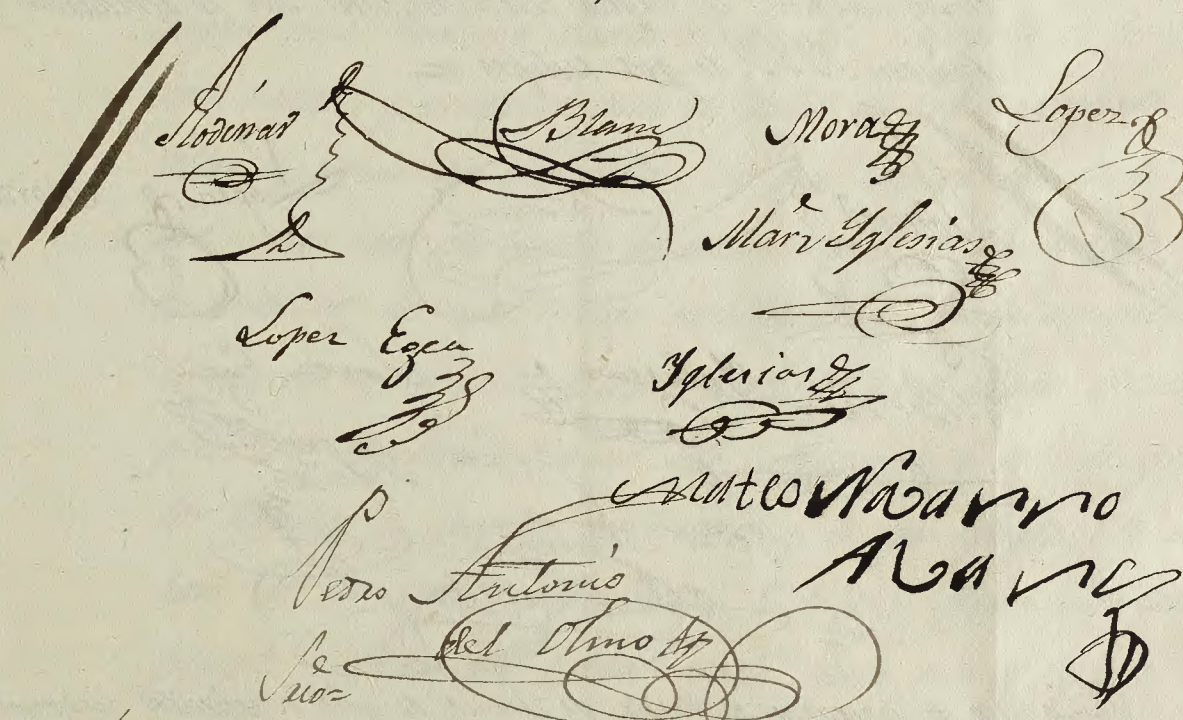 Rodenas Blanc Mora Lopez
Mari Yglesias
Lopez Egea Yglesias
Mateo Navarro
Pedro Antonio
del Olmo